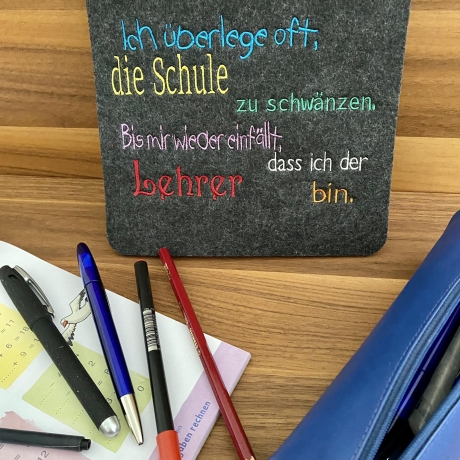 Ich überlege oft,
die Schule
zu schwänzen.
Bis mir wieder einfällt,
dass ich der
Lehrer
bin.